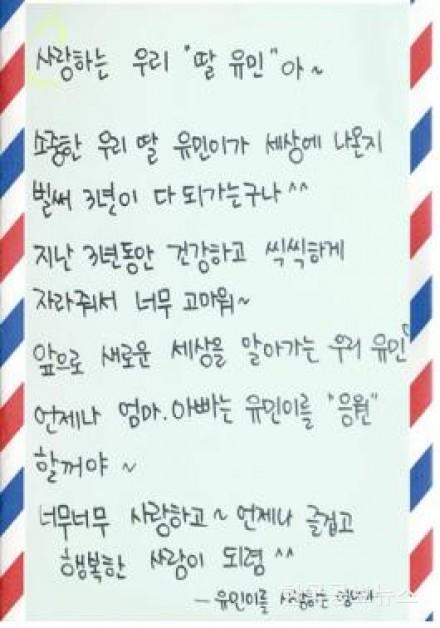 사랑하는 우리 "딸 유민"아~
소중한 우리 딸 유민이가 세상에 나온지
벌써 3년이 다 되가는구나^^
지난 3년동안 건강하고 씩씩하게
자라줘서 너무 고마워~
앞으로 새로운 세상을 알아가는 우리 유민
언제나 엄마.아빠는 유민이를 "응원"
할꺼야~
너무너무 사랑하고~ 언제나 즐겁고
행복한 사람이 되렴^^
- 유민이를 사랑하는
뉴스